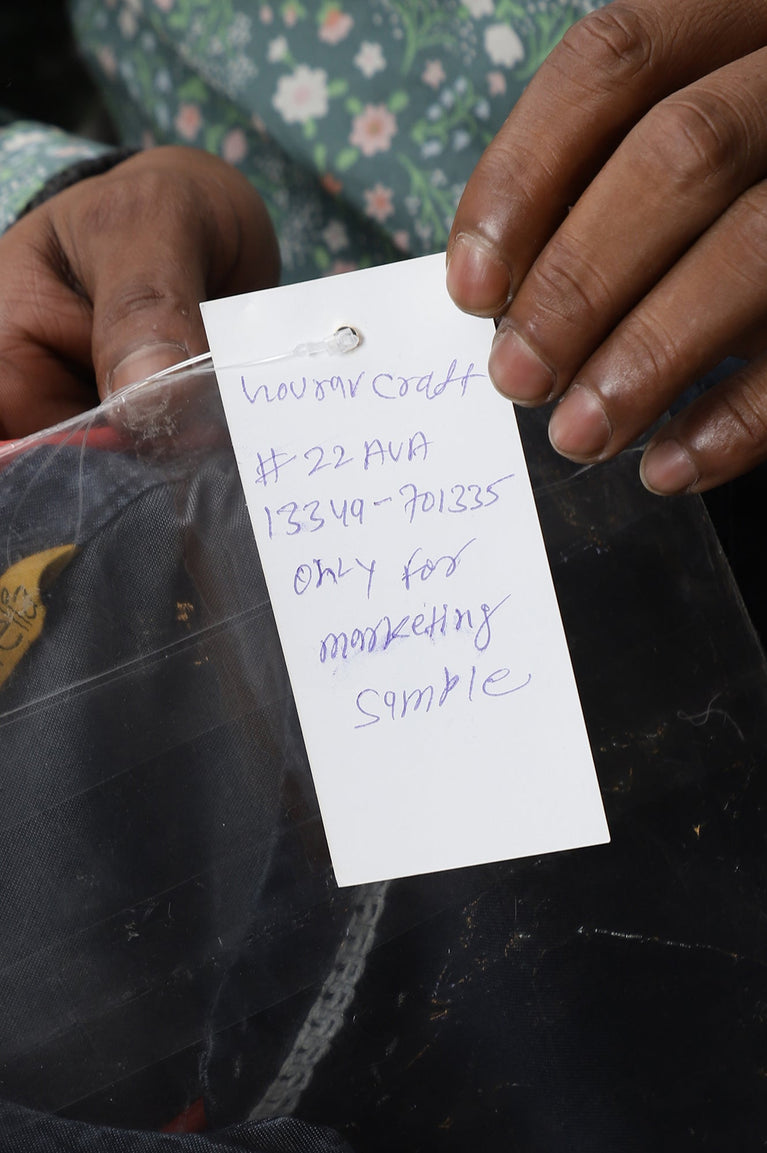 craft
# 22 AVA
13349-701335
only for
marketing
sample